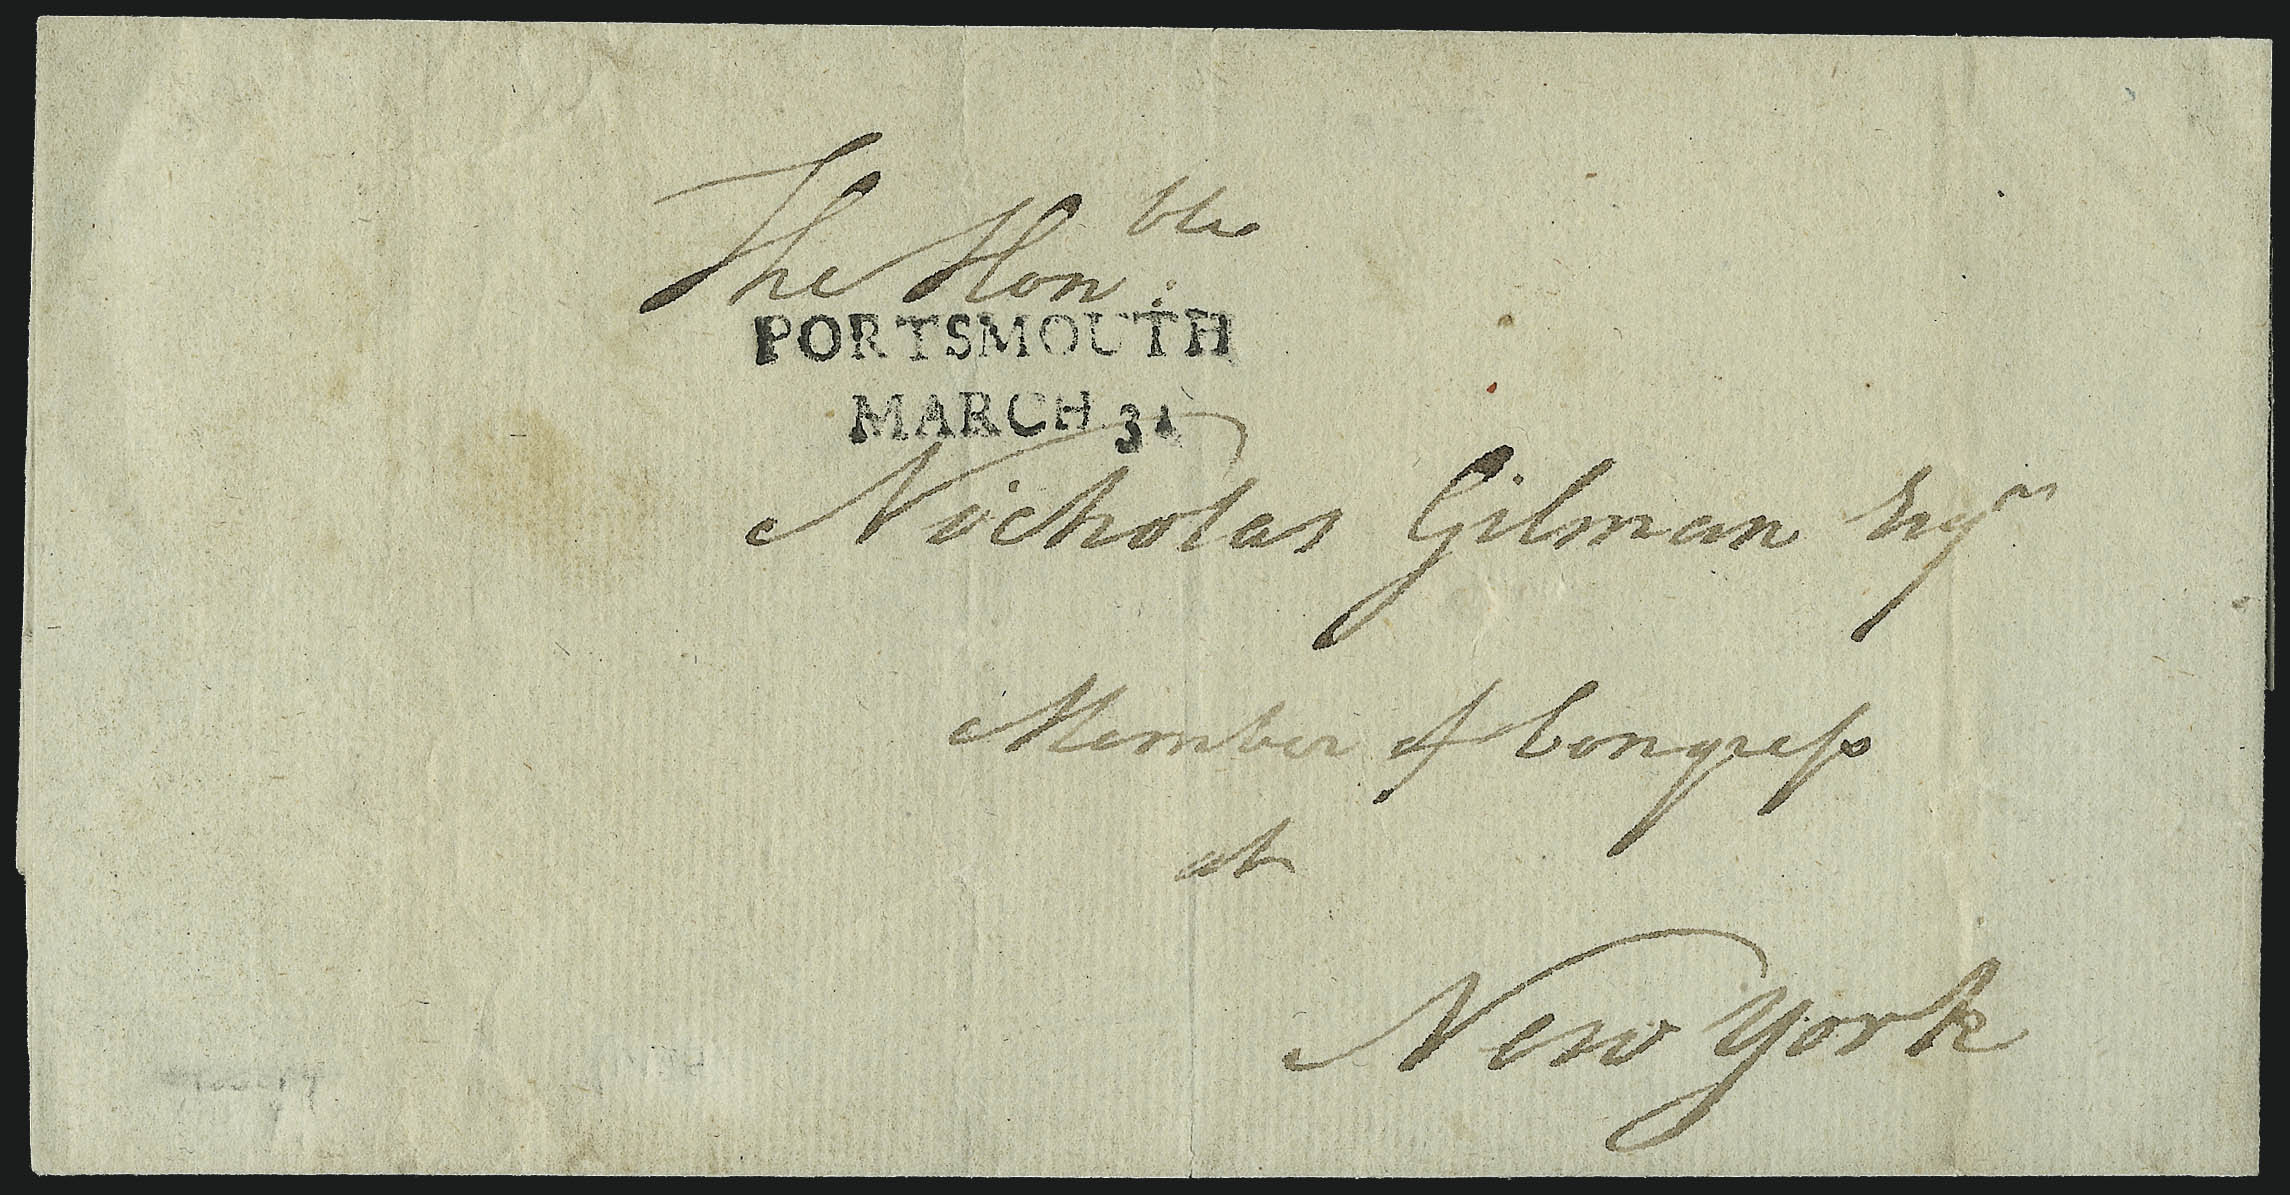 The Hon.ble
PORTSMOUTH
MARCH 31
Nicholas Gilman Esqr
Member of Congress
at
New York